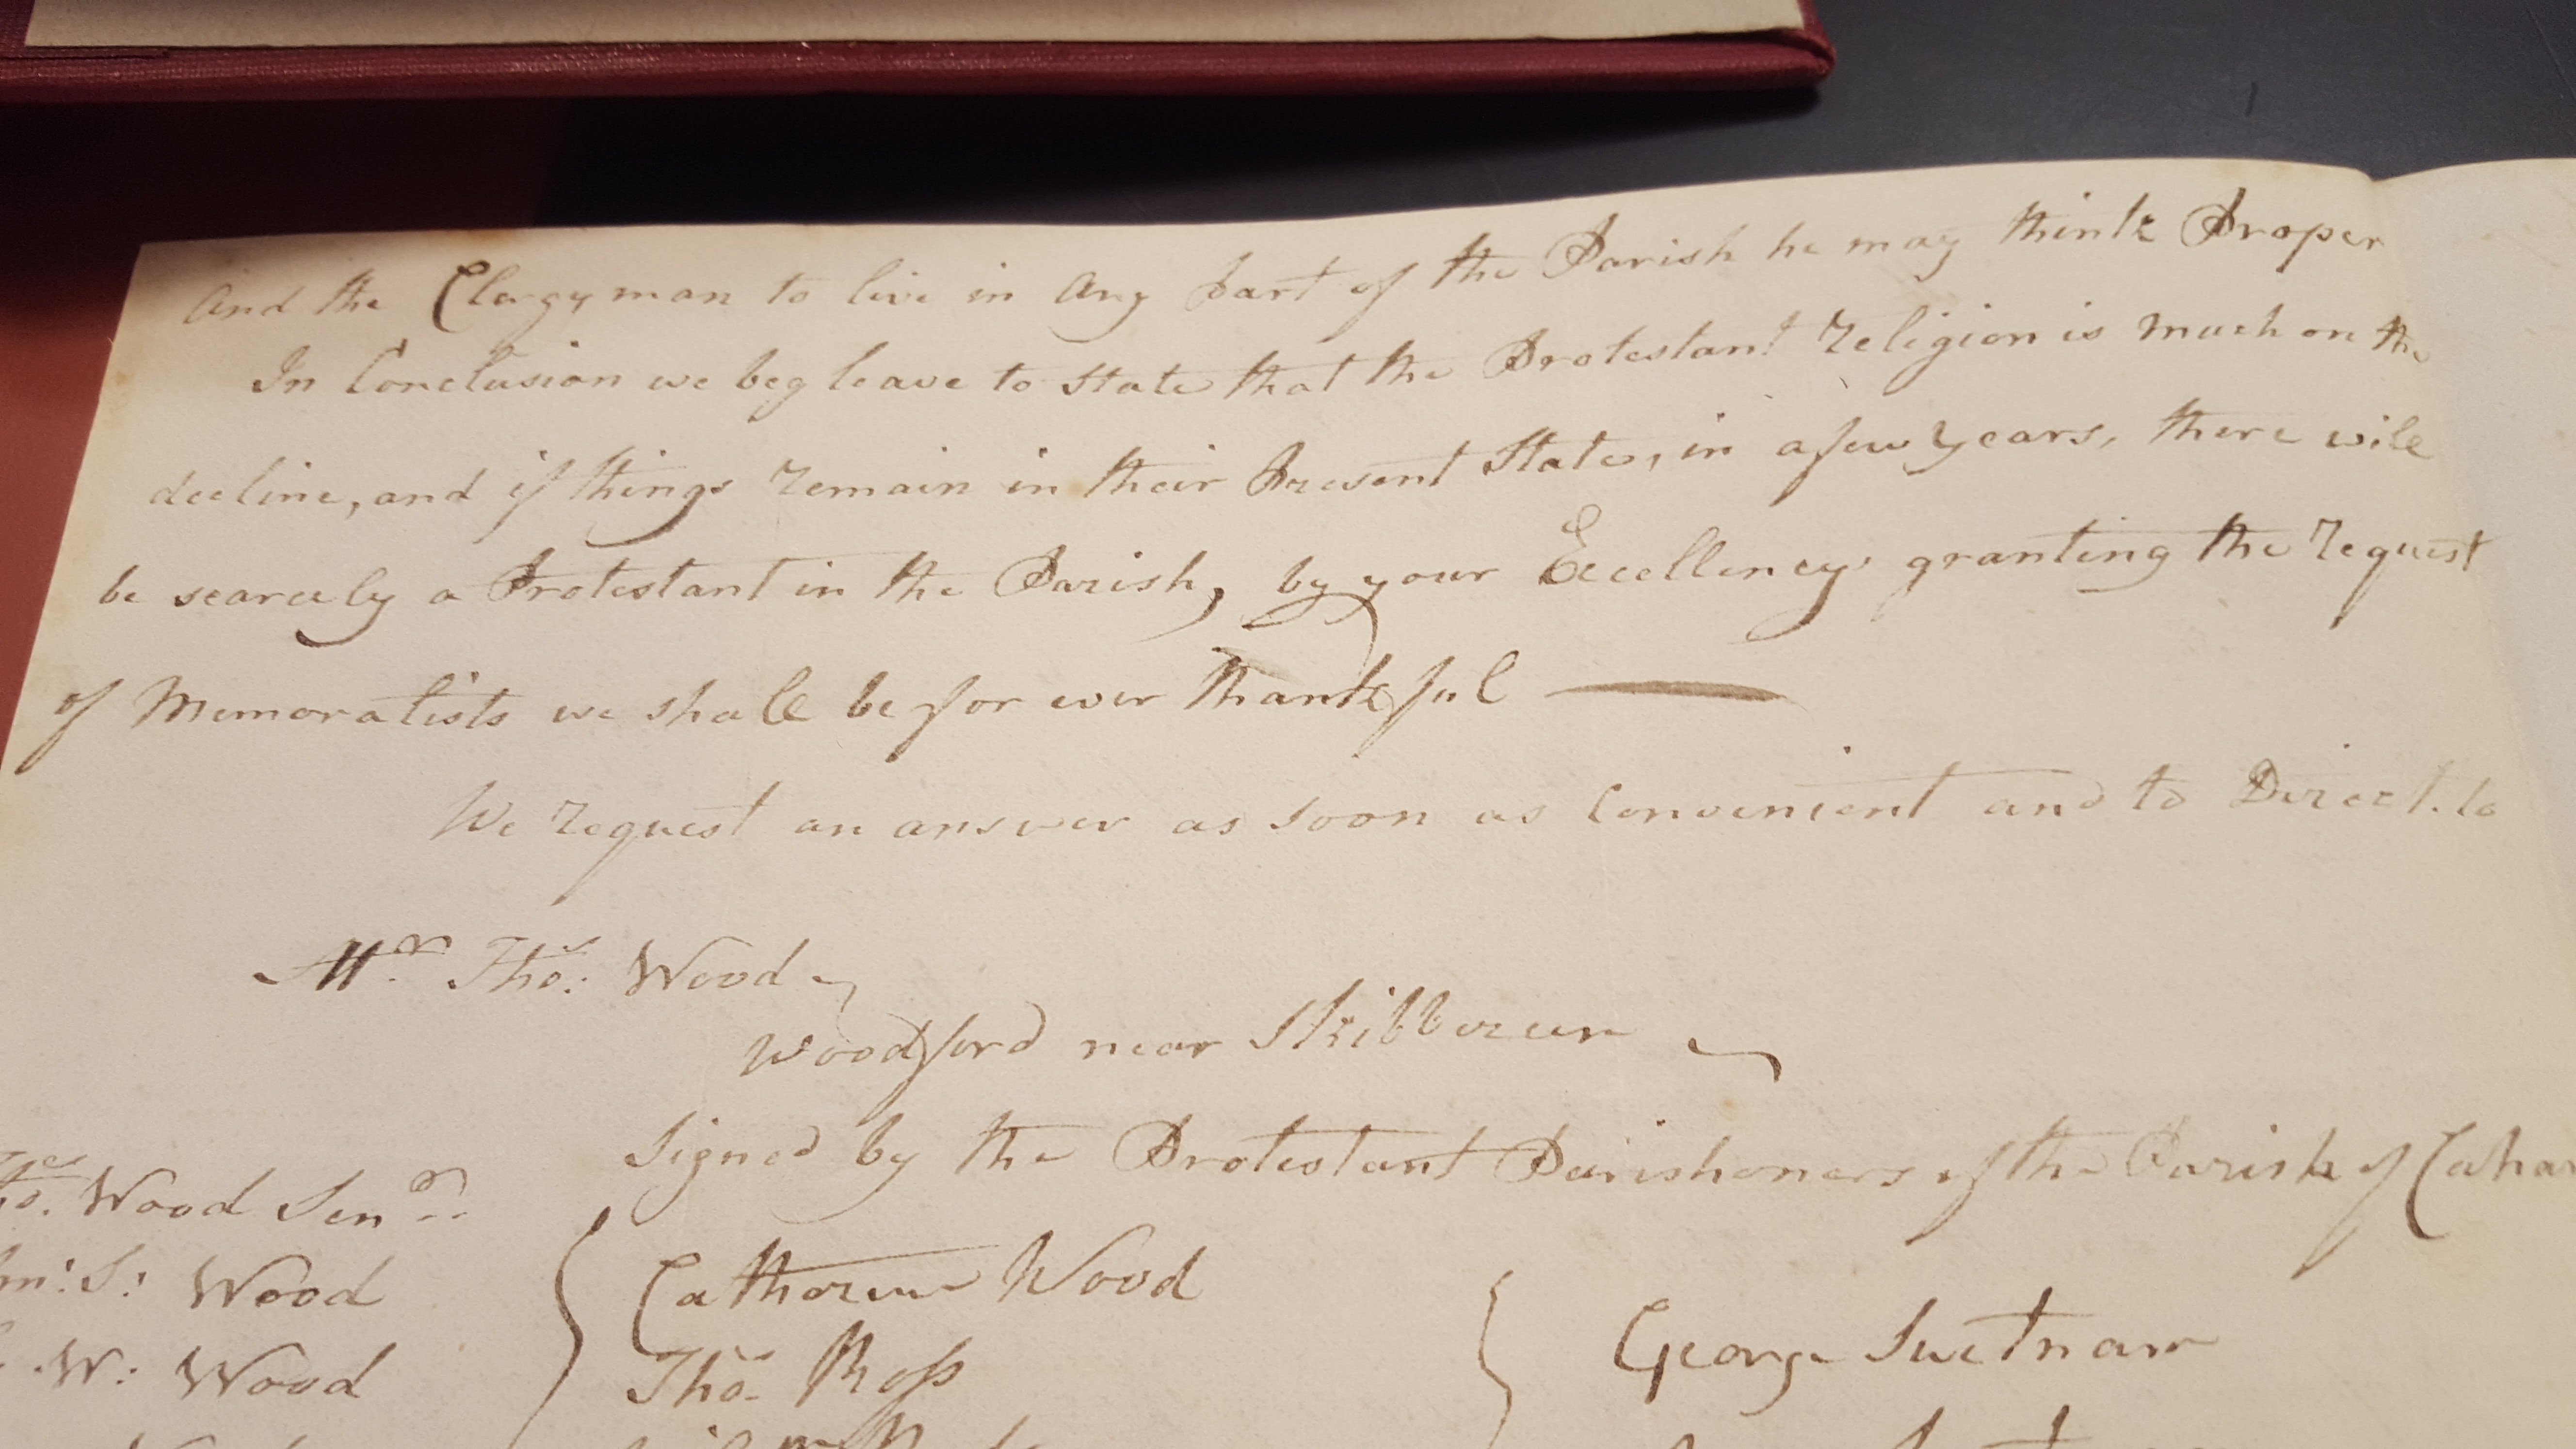 And the Clergyman to live in Any part of the Parish he may think Proper
In Conclusion we beg leave to state that the Protestant religion is much on the
decline, and if things remain in their Present State, in a few years, there will
be scarcely a Protestant in the Parish, by your Excellency's granting the request
of Memoralists we shall be for ever thankful —
We request an answer as soon as Convenient and to Direct to
Mr. Thos. Wood
Woodford near Skibbereen
Signed by the Protestant Parishoners of the Parish of Cahar
Thos. Wood Senr.
S: Wood
W: Wood
Catherine Wood
Thos. Ross
George Swetnam